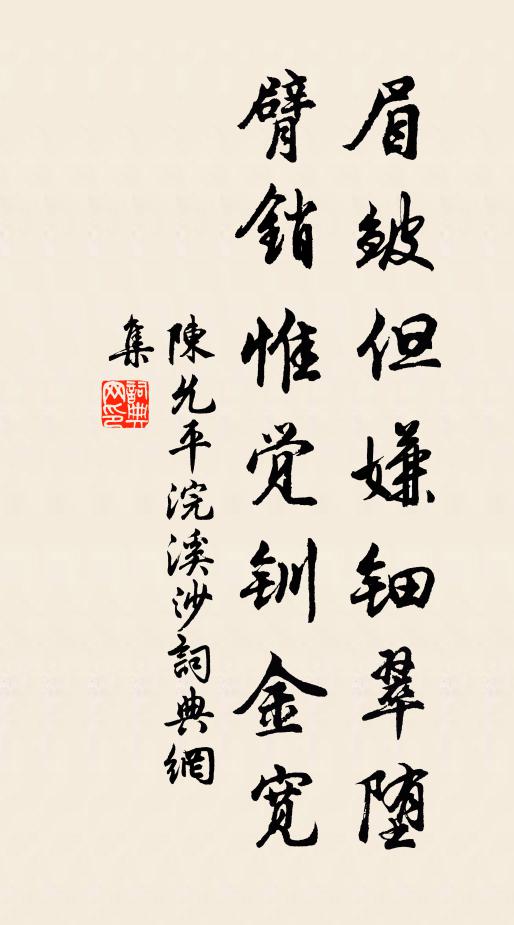 眉皱但嫌钿翠堕
臂銷惟觉钏金宽
陳允平浣溪沙詞典網
集
詞典网印